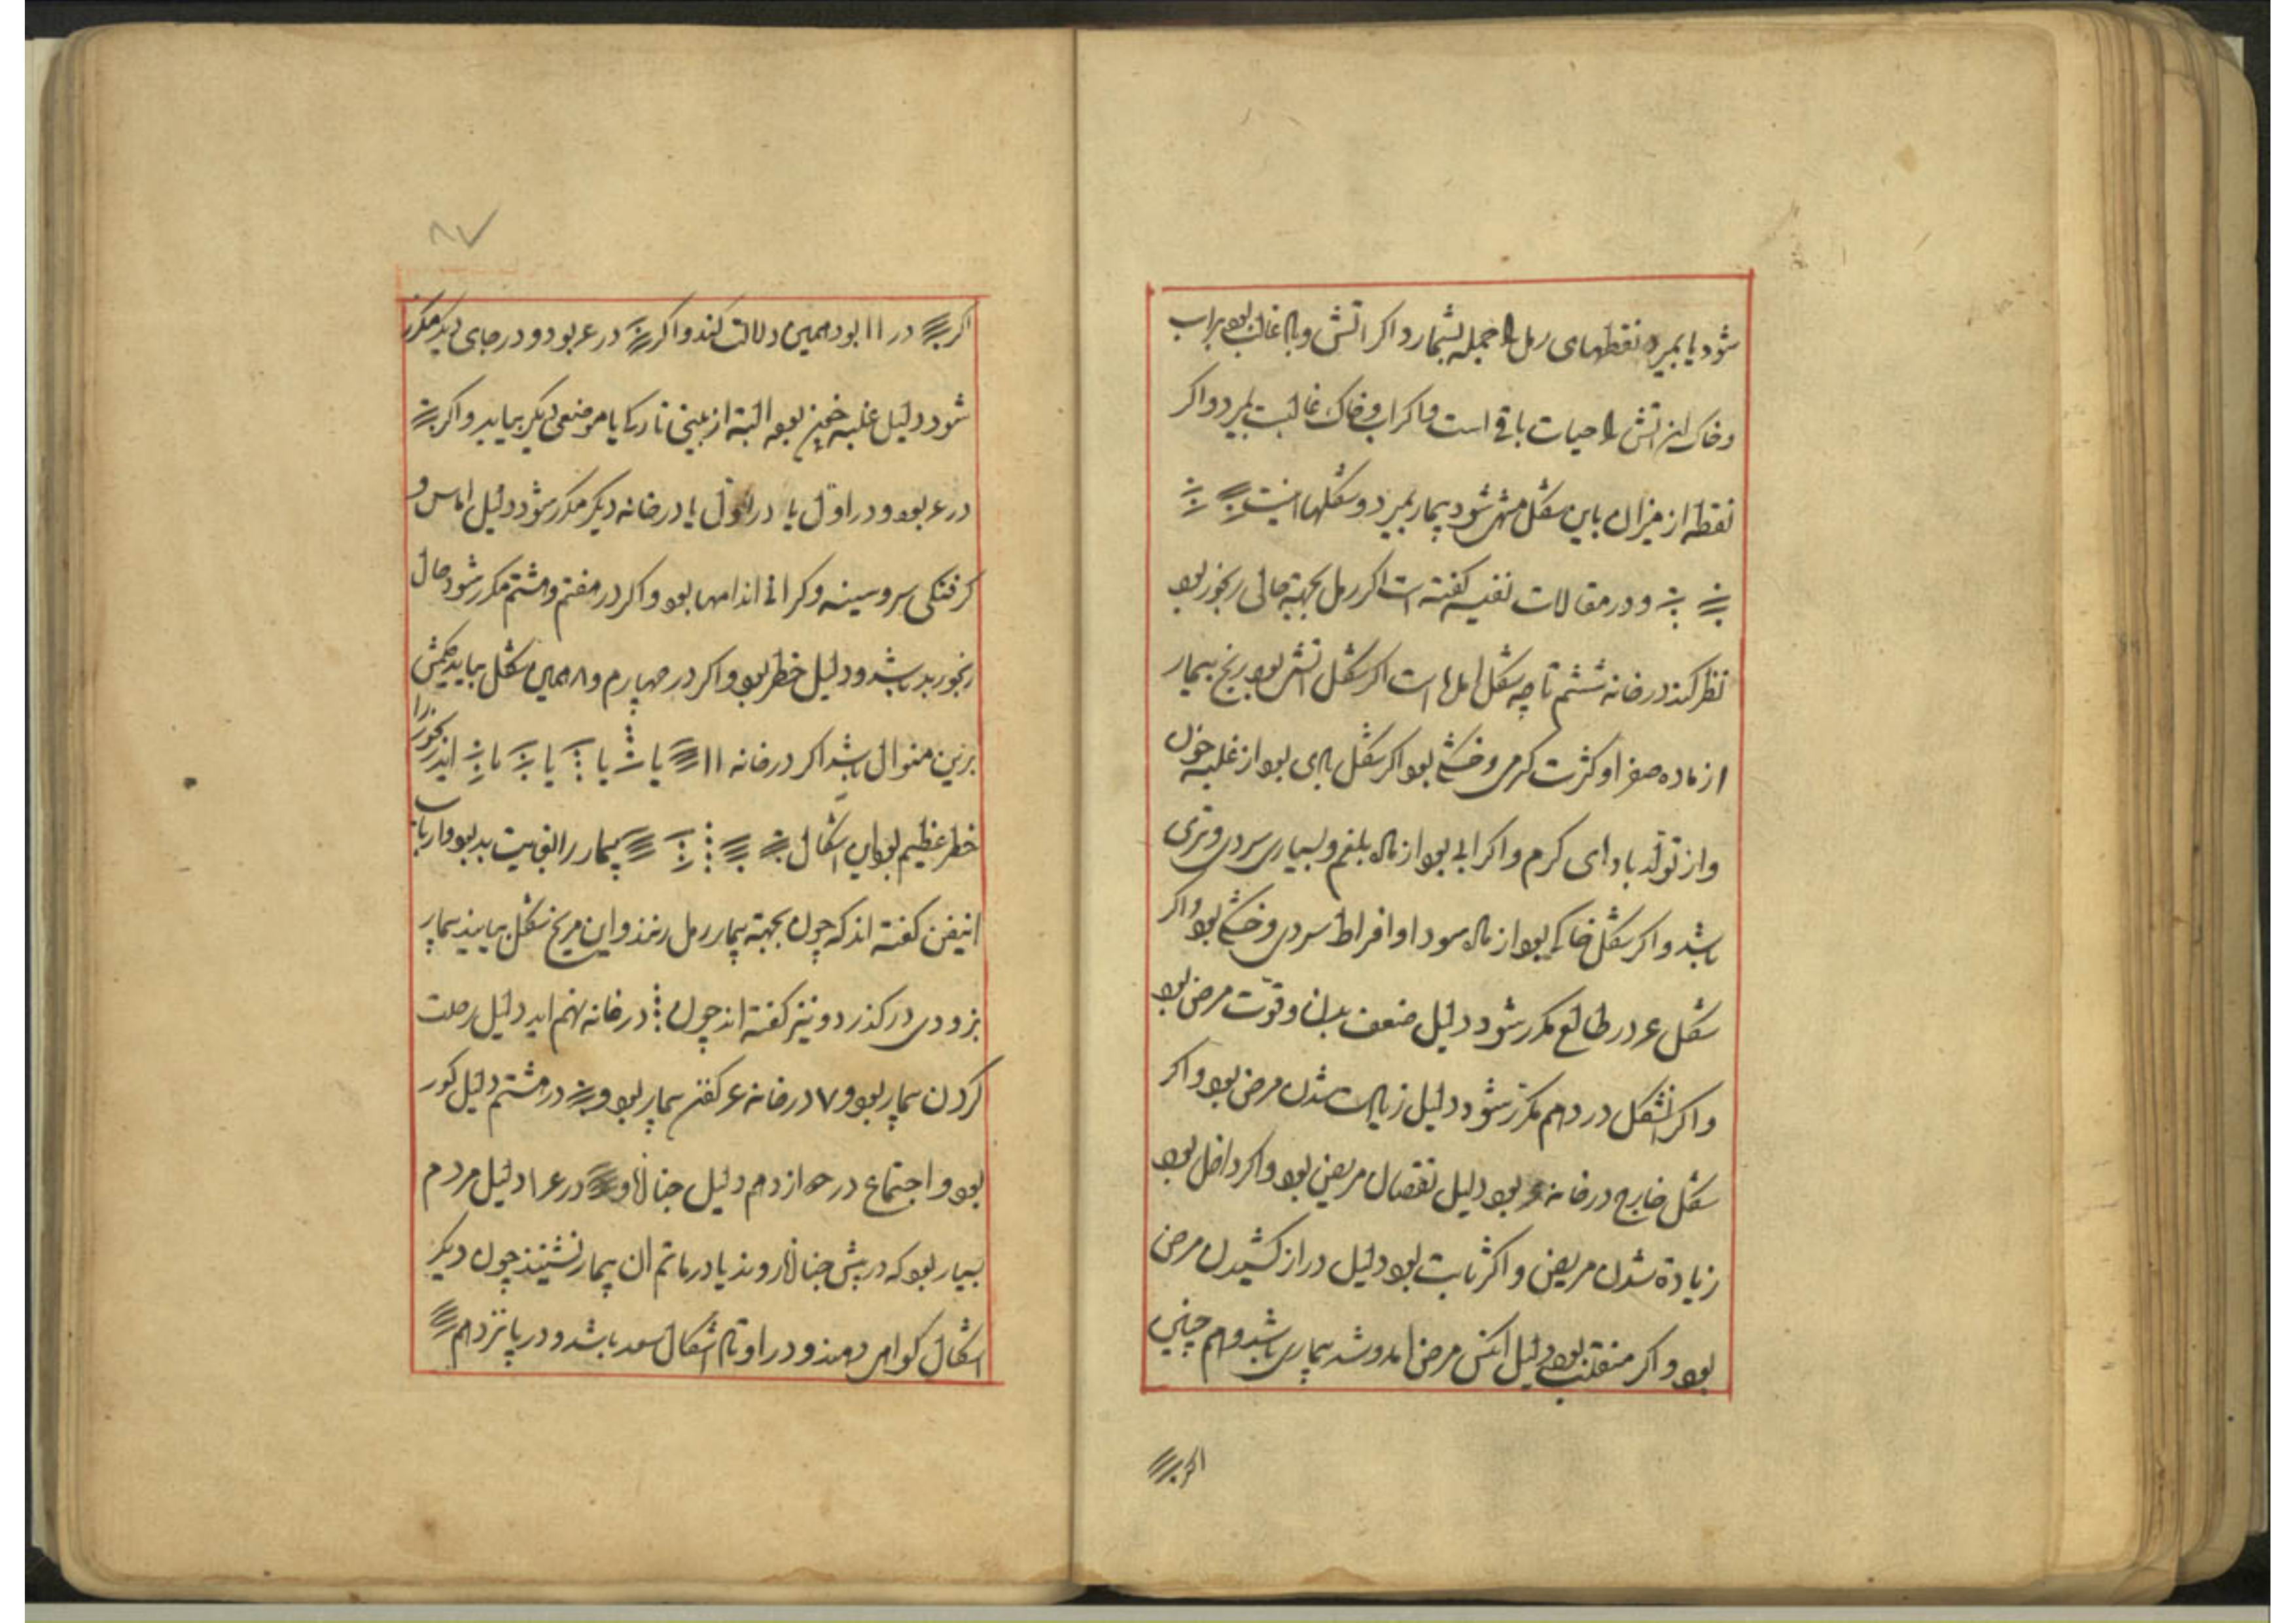 شود یا بمیرد نقطهای رمل را جمله بشمارد اکر اتش و باد غالب بود براب
وخاک اتش را حیات باقی است واکر اب وخاک غالبست بمیرد واکر
نقطه از میزان باین شکل منتهی شود بیمار بمیرد و شکلها اینست
و در مقالات نفیسه کفته است اکر رمل بجهة حالی رنجور بود
نظر کند در خانه ششم تا چه شکل امده است اکر شکل اتشی بود رنج بیمار
از ماده صفرا و کثرت کرمی و خشکی بود اکر شکل بادی بود از غلبه خون
واز تولد بادای کرم و اکر ابی بود از ماده بلغم و بسیاری سردی و تری
باشد و اکر شکل خاکی بود از ماده سودا و افراط سردی و خشکی بود واکر
شکل ع در طالع مکرر شود دلیل ضعف بدن و قوّت مرض بود
و اکر انشکل در دهم مکرر شود دلیل زیادت شدن مرض بود و اکر
شکل خارج در خانه ع بود دلیل نقصان مریض بود و اکر داخل بود
زیادة شدن مریض و اکر ثابت بود دلیل دراز کشیدن مرض
بود و اکر منقلب بود دلیل انکس مرض امد و شد بیماری باشد و هم چنین
اکر
۸۷
اکر در ۱۱ بود همین دلالت کند و اکر در ع بود و در جای دیکر مکرر
شود دلیل غلبه خون بود البتة از بینی یا موضعی دیکر بیاید و اکر
در ع بود و در اول یا در اول یا در خانه دیکر مکرر شود دلیل اماس و
کرفتکی سر و سینه و کرانی اندامها بود و اکر در هفتم و هشتم مکرر شود حال
رنجور بد باشد و دلیل خطر بود و اکر در چهارم و ۸ همین شکل بیاید حکمش
برین منوال باشد اکر در خانه ۱۱ یا یا یا یا اید رنجور را
خطر عظیم بود این اشکال بیمار را بغایت بد بود و ارباب
اینفن کفته اند که چون بجهة بیمار رمل زنند و این مریخ شکل بیایند بیمار
بزودی درکذرد و نیز کفته اند چون در خانه نهم اید دلیل رحلت
کردن بیمار بود و ۷ در خانه ع کفن بیمار بود و در هشتم دلیل کور
بود و اجتماع در دوازدهم دلیل جنازه و در ۱۴ دلیل مردم
بسیار بود که در پیش جنازه روند یا در ماتم ان بیمار نشینند چون دیکر
اشکال کواهی دهند و در اوتاد اشکال سعد باشد و در پانزدهم